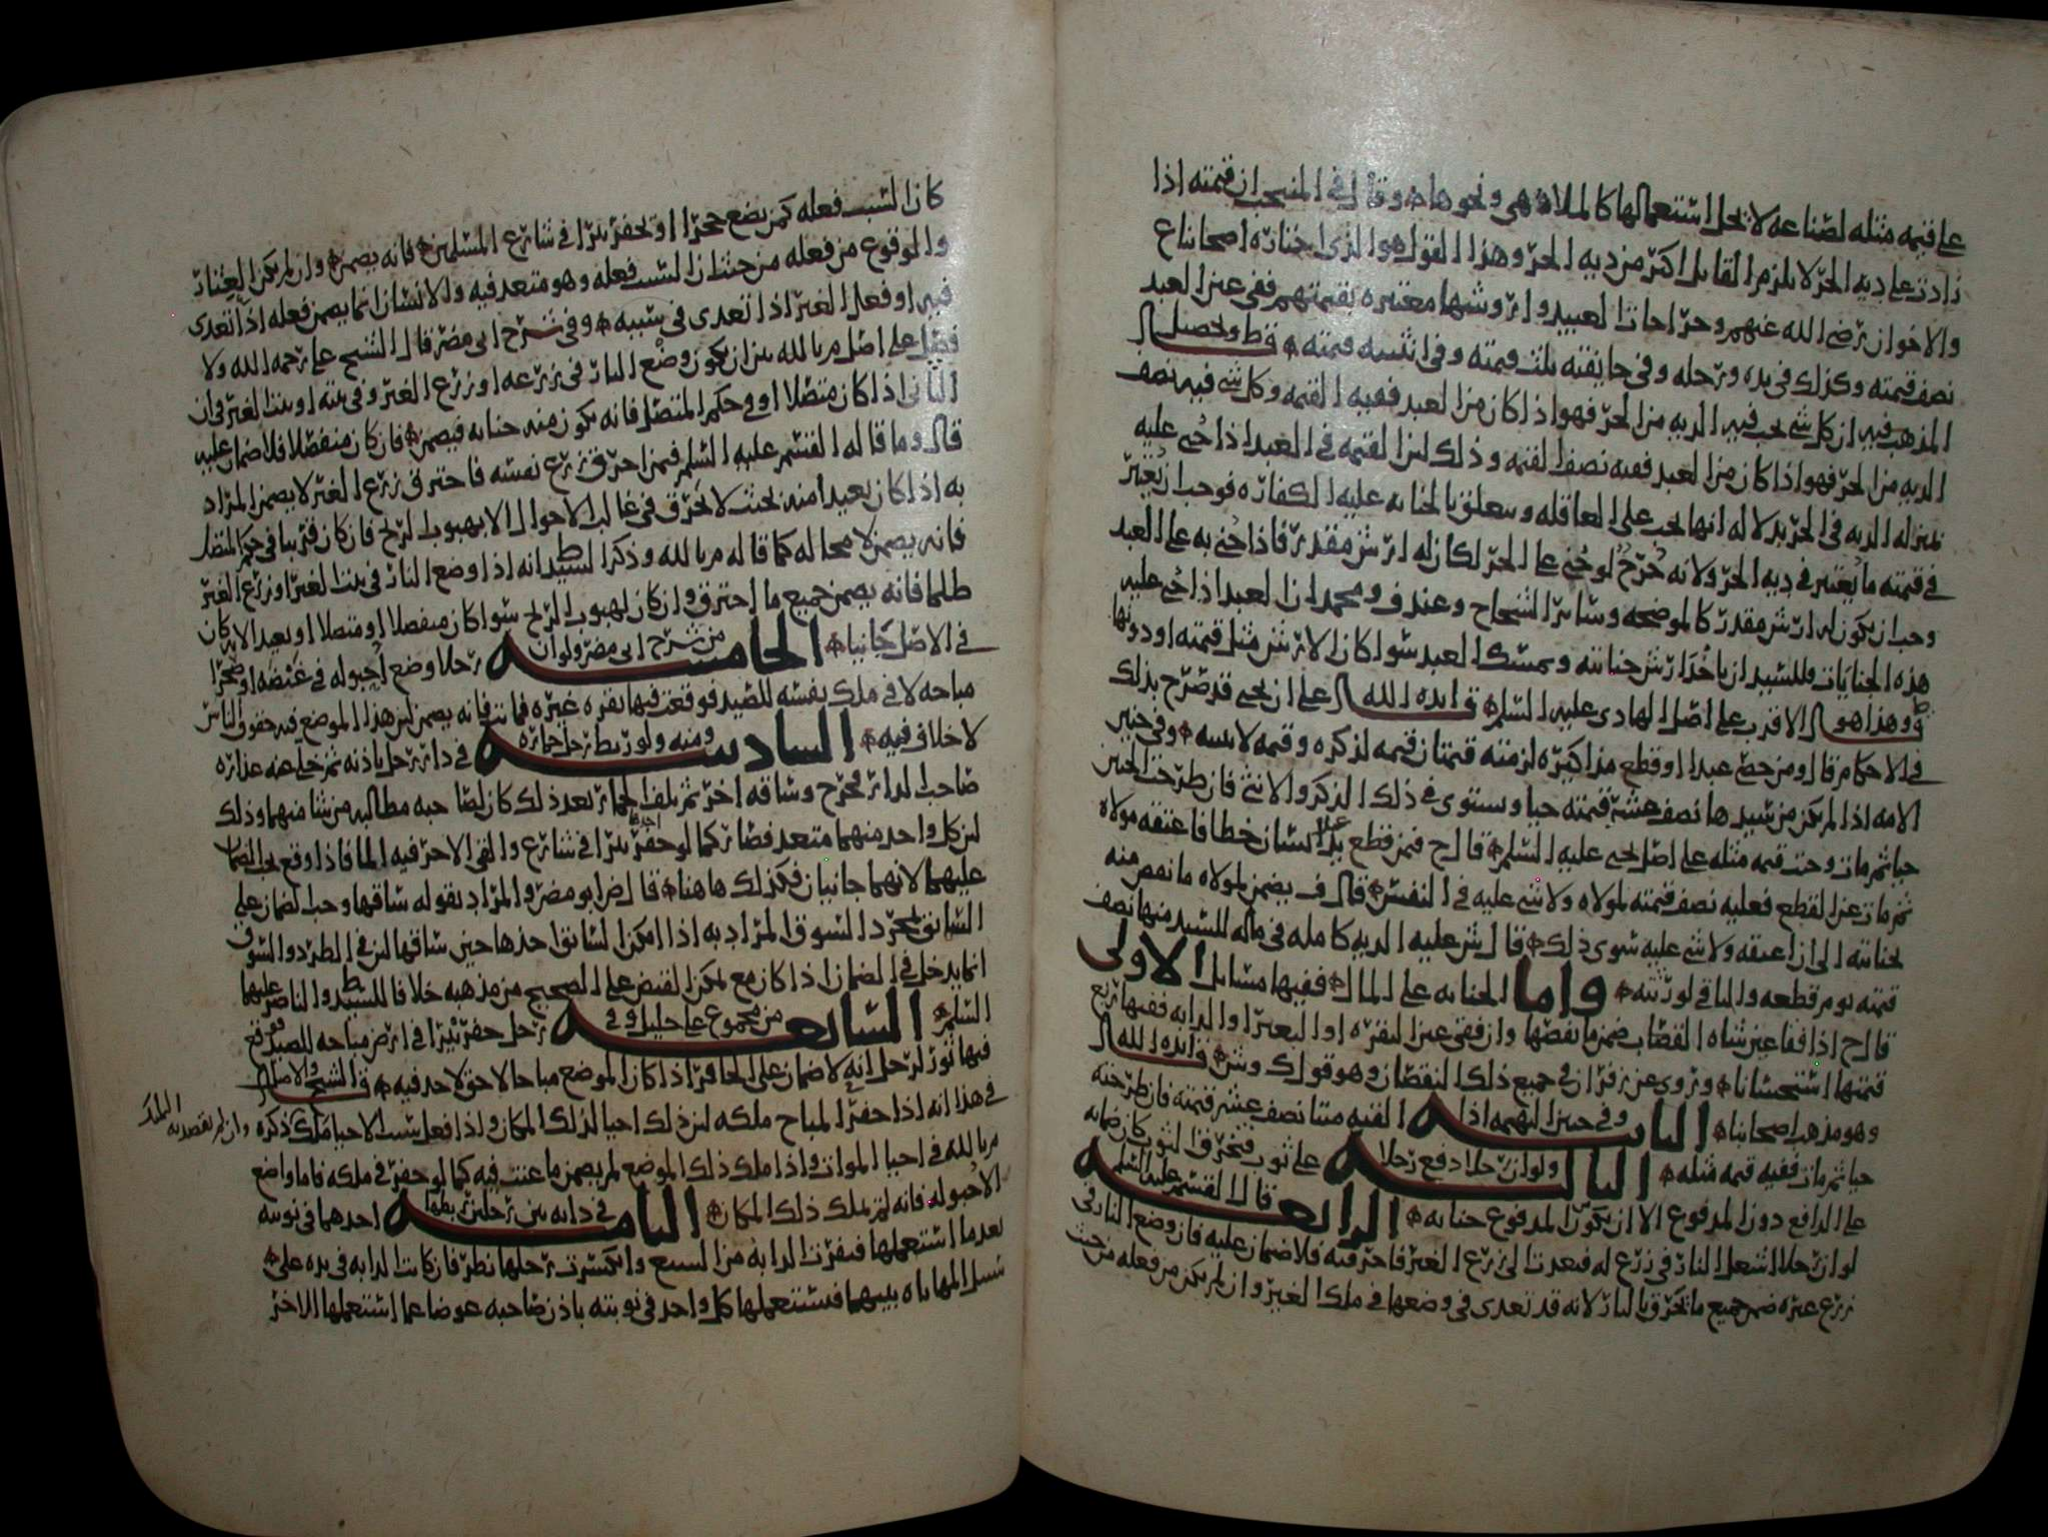 على قيمه مثله لصناعه لا يحل استعمالها كالملاهى ونحوها وقال فى المنتخب ان قيمته اذا
زادت على ديه الحر لا يلزم القاتل اكثر من ديه الحر وهذا القول هو الذى اختاره اصحابنا ع
والاخوان رضى الله عنهم وجراحات العبيد واروشها معتبره بقيمتهم ففى عين العبد
نصف قيمته وكذلك فى يده ورجله وفى جايفته ثلث قيمته وفى انثييه قيمته قط وتحصيل
المذهب فيه ان كل شى يجب فيه الديه من الحر فهو اذا كان من العبد ففيه القيمه وكل شى فيه نصف
الديه من الحر فهو اذا كان من العبد ففيه نصف القيمه وذلك لان القيمه فى العبد اذا جُنى عليه
بمنزله الديه فى الحر بدلاله انها تجب على العاقله ويتعلق بالجنايه عليه الكفاره فوجب ان يُعتبر
فى قيمته ما يُعتبر فى ديه الحر ولانه جُرْحٌ لو جُنى على الحر لكان له ارش مقدر فاذا جُنى به على العبد
وجب ان يكون له ارش مقدر كالموضحه وساير الشجاج وعند ف ومحمد ان العبد اذا جُنى عليه
هذه الجنايات فللسيد ان ياخُذ ارش جنايته ويمسك العبد سوا كان الارش مثل قيمته او دونها
ق وهذا هو الاقرب على اصل الهادى عليه السلم قايده الله على ان يحيى قد صرح بذلك
فى الاحكام قال ومن خصى عبدا او قطع مذاكيره لزمته قيمتان قيمه لذكره وقيمه لانثييه وفى جنين
الامه اذا لم يكن من سيدها نصف عشر قيمته حيا ويستوى فى ذلك الذكر والانثى فان طرحت الجنين
حيا ثم مات وجبت قيمه مثله على اصل يحيى عليه السلم قال ح فمن قطع يد انسان خطا فاعتقه مولاه
ثم مات عن القطع فعليه نصف قيمته لمولاه ولا شى عليه فى النفس قال ف يضمن لمولاه ما نقص منه
بجنايته الى ان اعتقه ولا شى عليه سوى ذلك قال ش عليه الديه كامله فى ماله للسيد منها نصف
قيمته يوم قطعه والباقى لورثته واما الجنايه على المال ففيها مسايل الاولى
قال ح اذا فقا عين شاه القصاب ضمن ما نقصها وان فقى عين البقره او البعير او الدابه ففيها ربع
قيمتها استحسانا وروى عن زفر ان فى جميع ذلك النقصان وهو قول ك وش قايده الله
وهو مذهب اصحابنا الثانيه وفى جنين البهيمه اذا القته ميتا نصف عشر قيمته فان طرحته
حيا ثم مات ففيه قيمه مثله الثالثه ولو ان رجلا دفع رجلا على ثوب فتخرق الثوب كان ضمانه
على الدافع دون المدفوع الا ان يكون المدفوع جنايه الرابعه قال القسم عليه السلم
لو ان رجلا اشعل النار فى زرع له فتعدت الى زرع الغير فاحرقته فلا ضمان عليه فان وضع النار فى
زرع غيره ضمن جميع ما تحرق بالنار لانه قد تعدى فى وضعها فى ملك الغير وان لم يكن من فعله من حيث
كان السبب فعله كمن يضع حجرا او يحفر بيرا فى شارع المسلمين فانه يضمن وان لم يكن العثار
والوقوع من فعله من حيث ان السبب فعله وهو متعد فيه والانسان انما يضمن فعله اذا تعدى
فيه او فعل الغير اذا تعدى فى سببه وفى شرح ابى مضر قال الشيخ على رحمه الله ولا
فصل على اصل م بالله بين ان يكون وضع النار فى زرعه او زرع الغير وفى بيته او بيت الغير فى ان
الثانى اذا كان متصلا او فى حكم المتصل فانه يكون منه جنايه فيضمن فان كان منفصلا فلا ضمان عليه
قال وما قاله القسم عليه السلم فيمن احرق زرع نفسه فاحترق زرع الغير لا يضمن المراد
به اذا كان بعيدا منه بحيث لا يحرق فى غالب الاحوال الا بهبوب الريح فان كان قريبا فى حكم المتصل
فانه يضمن لا محاله كما قاله م بالله وذكر السيد ط انه اذا وضع النار فى بيت الغير او زرع الغير
ظلما فانه يضمن جميع ما احترق وان كان لهبوب الريح سوا كان منفصلا او متصلا او بعيدا لانه كان
فى الاصل جانيا الخامسه من شرح ابى مضر ولو ان رجلا وضع اُحبوله فى غيضه او صحرا
مباحه لا فى ملك نفسه للصيد فوقعت فيها بقره غيره فماتت فانه يضمن لان هذا الموضع فيه حقوق الناس
لا خلاف فيه السادسه ومنه ولو ربط رجل حماره فى دار رجل باذنه ثم خلى عنه عذاره
صاحب الدار فخرج وساقه اخر ثم تلف الحمار بعد ذلك كان لصاحبه مطالبه من شا منهما وذلك
لان كل واحد منهما متعد فصار كما لو حفر احدهما بيرا فى شارع والقى الاخر فيه الما فاذا وقع يجب الضمان
عليهما لانهما جانيان فكذلك هاهنا قال ض ابو مضر والمراد بقوله ساقها وجب الضمان على
السايق بمجرد السوق المراد به اذا امكن السايق اخذها حين ساقها لان فى الطرد والسوق
انما يدخل فى الضمان اذا كان مع تمكن القبض على الصحيح من مذهبه خلافا للسيد ط والناصر عليهما
السلم السابعه من مجموع على خليل وفى رجل حفر بيرا فى ارض مباحه للصيد فوقع
فيها ثور لرجل انه لا ضمان على الحافر اذا كان الموضع مباحا لا حق لاحد فيه قال الشيخ والاصل
فى هذا انه اذا حفر المباح ملكه لان ذلك احيا لذلك المكان واذا فعل سبب الاحيا ملك ذكره وان لم يقصد به الملك
م بالله فى احيا الموات واذا ملك ذلك الموضع لم يضمن ما عنت فيه كما لو حفر فى ملكه فاما واضع
الاُحبوله فانه لم يملك ذلك المكان الثامنه فى دابه بين رجلين ربطها احدهما فى نوبته
بعد ما استعملها فنفرت الدابه من السبع وانكسرت رجلها نظر فان كانت الدابه فى يده على
سبيل المهاياه بينهما فيستعملها كل واحد فى نوبته باذن صاحبه عوضا عما استعملها الاخر